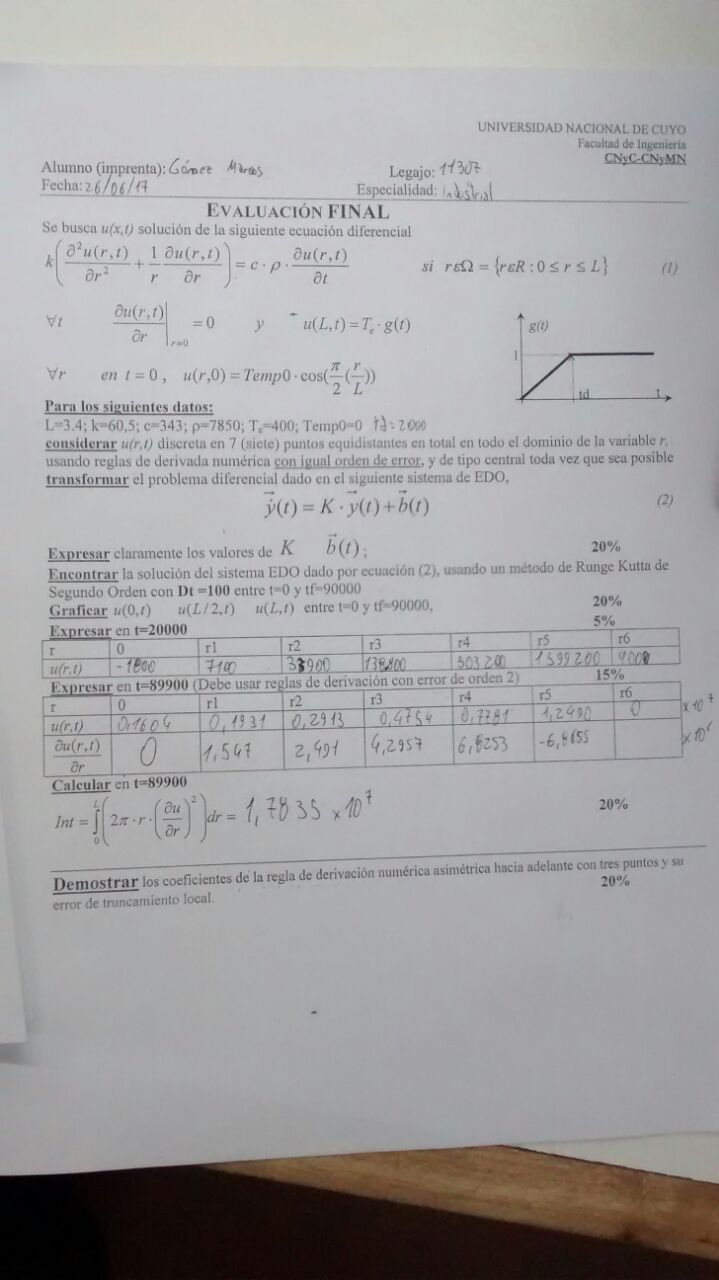 UNIVERSIDAD NACIONAL DE CUYO
Facultad de Ingeniería
CNyC-CNyMN
Alumno (imprenta): Gómez Marcos Legajo: 11307
Fecha: 26/06/17 Especialidad: Industrial
EVALUACIÓN FINAL
Se busca u(x,t) solución de la siguiente ecuación diferencial
k(∂²u(r,t)/∂r² + 1/r ∂u(r,t)/∂r) = c·ρ·∂u(r,t)/∂t si rεΩ = {rεR : 0 ≤ r ≤ L} (1)
∀t ∂u(r,t)/∂r|r=0 = 0 y u(L,t) = Te·g(t)
g(t)
1
td t
∀r en t = 0, u(r,0) = Temp0·cos(π/2(r/L))
Para los siguientes datos:
L=3.4; k=60,5; c=343; ρ=7850; Te=400; Temp0=0 td=2000
considerar u(r,t) discreta en 7 (siete) puntos equidistantes en total en todo el dominio de la variable r,
usando reglas de derivada numérica con igual orden de error, y de tipo central toda vez que sea posible
transformar el problema diferencial dado en el siguiente sistema de EDO,
ẏ(t) = K·y(t) + b(t) (2)
Expresar claramente los valores de K b(t); 20%
Encontrar la solución del sistema EDO dado por ecuación (2), usando un método de Runge Kutta de
Segundo Orden con Dt =100 entre t=0 y tf=90000
20%
Graficar u(0,t) u(L/2,t) u(L,t) entre t=0 y tf=90000,
5%
Expresar en t=20000
r 0 r1 r2 r3 r4 r5 r6
u(r,t) -1800 7100 33900 138800 503200 1599200
Expresar en t=89900 (Debe usar reglas de derivación con error de orden 2) 15%
r 0 r1 r2 r3 r4 r5 r6
u(r,t) 0,1604 0,1931 0,2913 0,4754 0,7781 1,2490 0 x10⁷
∂u(r,t)/∂r 0 1,547 2,491 4,2957 6,8253 -6,4655 x10⁶
Calcular en t=89900
Int = ∫₀ᴸ(2π·r·(∂u/∂r)²)dr = 1,7835 x10⁷ 20%
Demostrar los coeficientes de la regla de derivación numérica asimétrica hacia adelante con tres puntos y su
error de truncamiento local. 20%